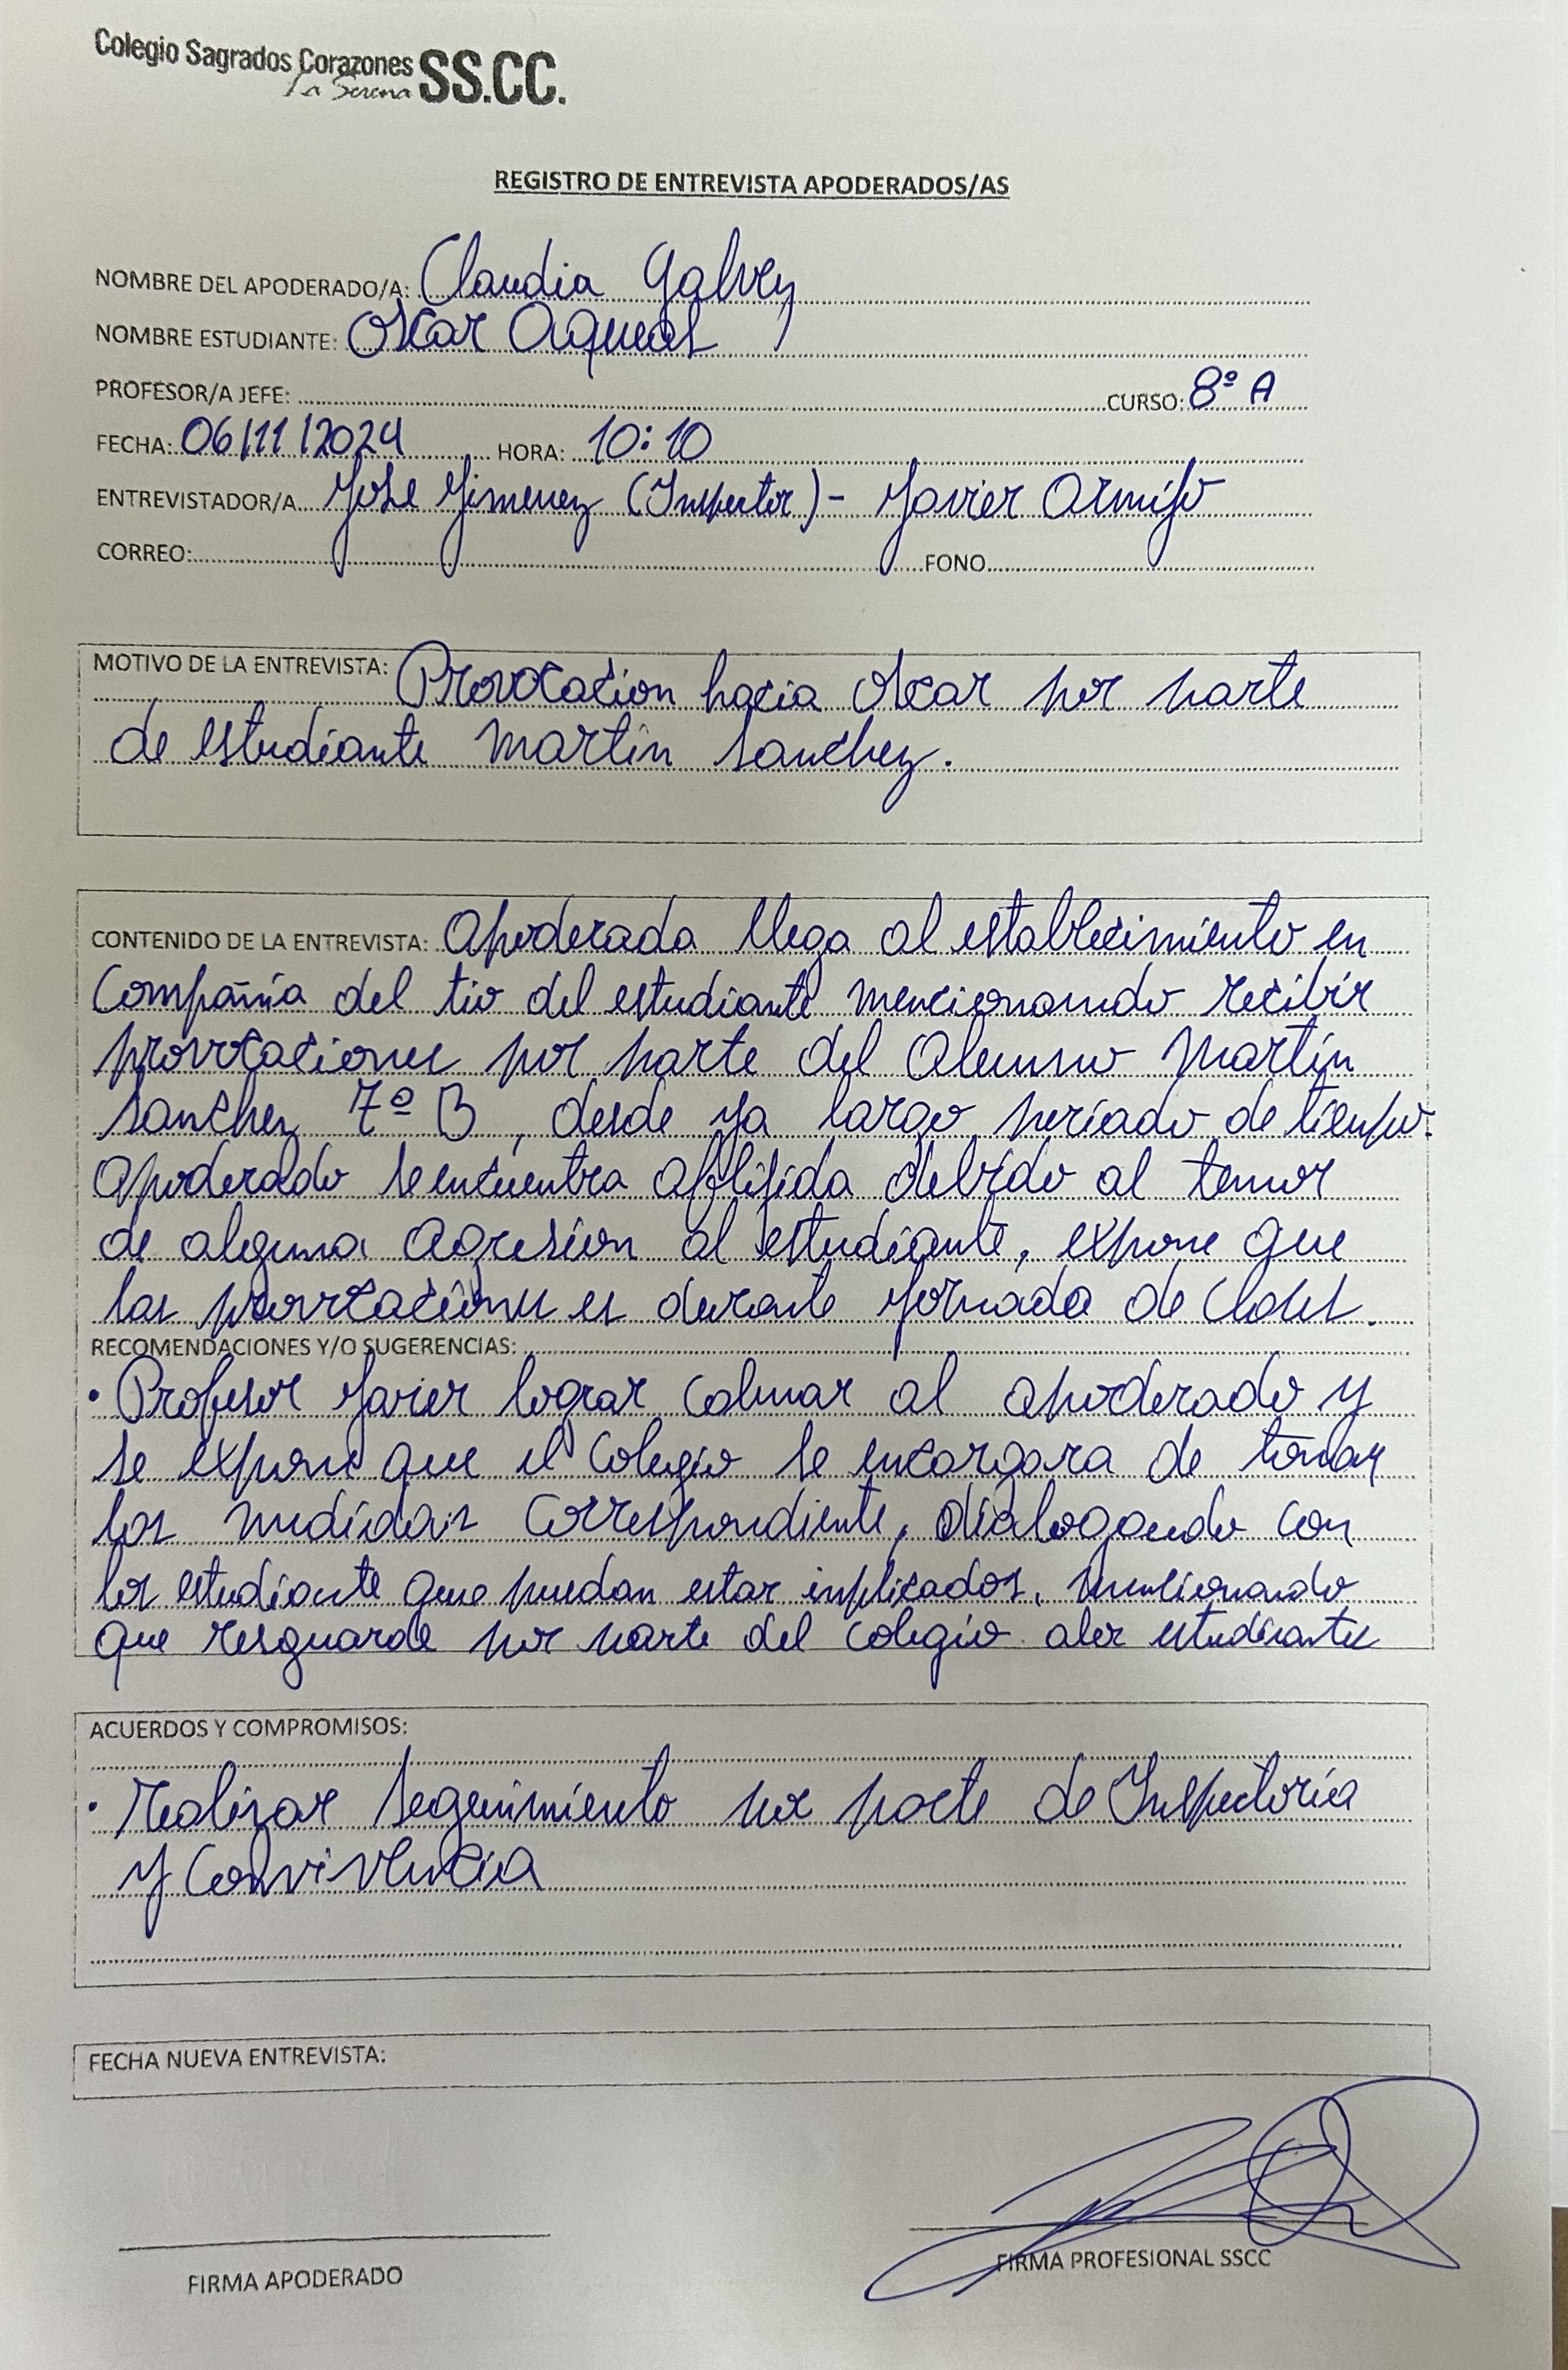 Colegio Sagrados Corazones SS.CC.
La Serena
REGISTRO DE ENTREVISTA APODERADOS/AS
NOMBRE DEL APODERADO/A: Claudia Galvez
NOMBRE ESTUDIANTE: Oscar
PROFESOR/A JEFE: CURSO: 8º A
FECHA: 06/11/2024 HORA: 10:10
ENTREVISTADOR/A Jose Jimenez (Inspector) - Javier Armijo
CORREO: FONO
MOTIVO DE LA ENTREVISTA: Provocacion hacia Oscar por parte
de estudiante Martin Sanchez.
CONTENIDO DE LA ENTREVISTA: Apoderada llega al establecimiento en
Compañia del tio del estudiante mencionando recibir
provocaciones por parte del Alumno Martin
Sanchez 7º B, desde ya largo periado de tiempo.
Apoderado se encuentra aflijida debido al temor
de alguna agresion al estudiante, expone que
las provocaciones es durante jornada de clases.
RECOMENDACIONES Y/O SUGERENCIAS:
• Profesor Javier lograr calmar al apoderado y
se expone que el colegio se encargara de tomar
las medidas correspondiente, dialogando con
los estudiante que puedan estar inplicados, mencionando
que resguarde por parte del colegio alos estudiantes
ACUERDOS Y COMPROMISOS:
• Realizar seguimiento por parte de Inspectoria
y Convivencia
FECHA NUEVA ENTREVISTA:
FIRMA APODERADO
FIRMA PROFESIONAL SSCC